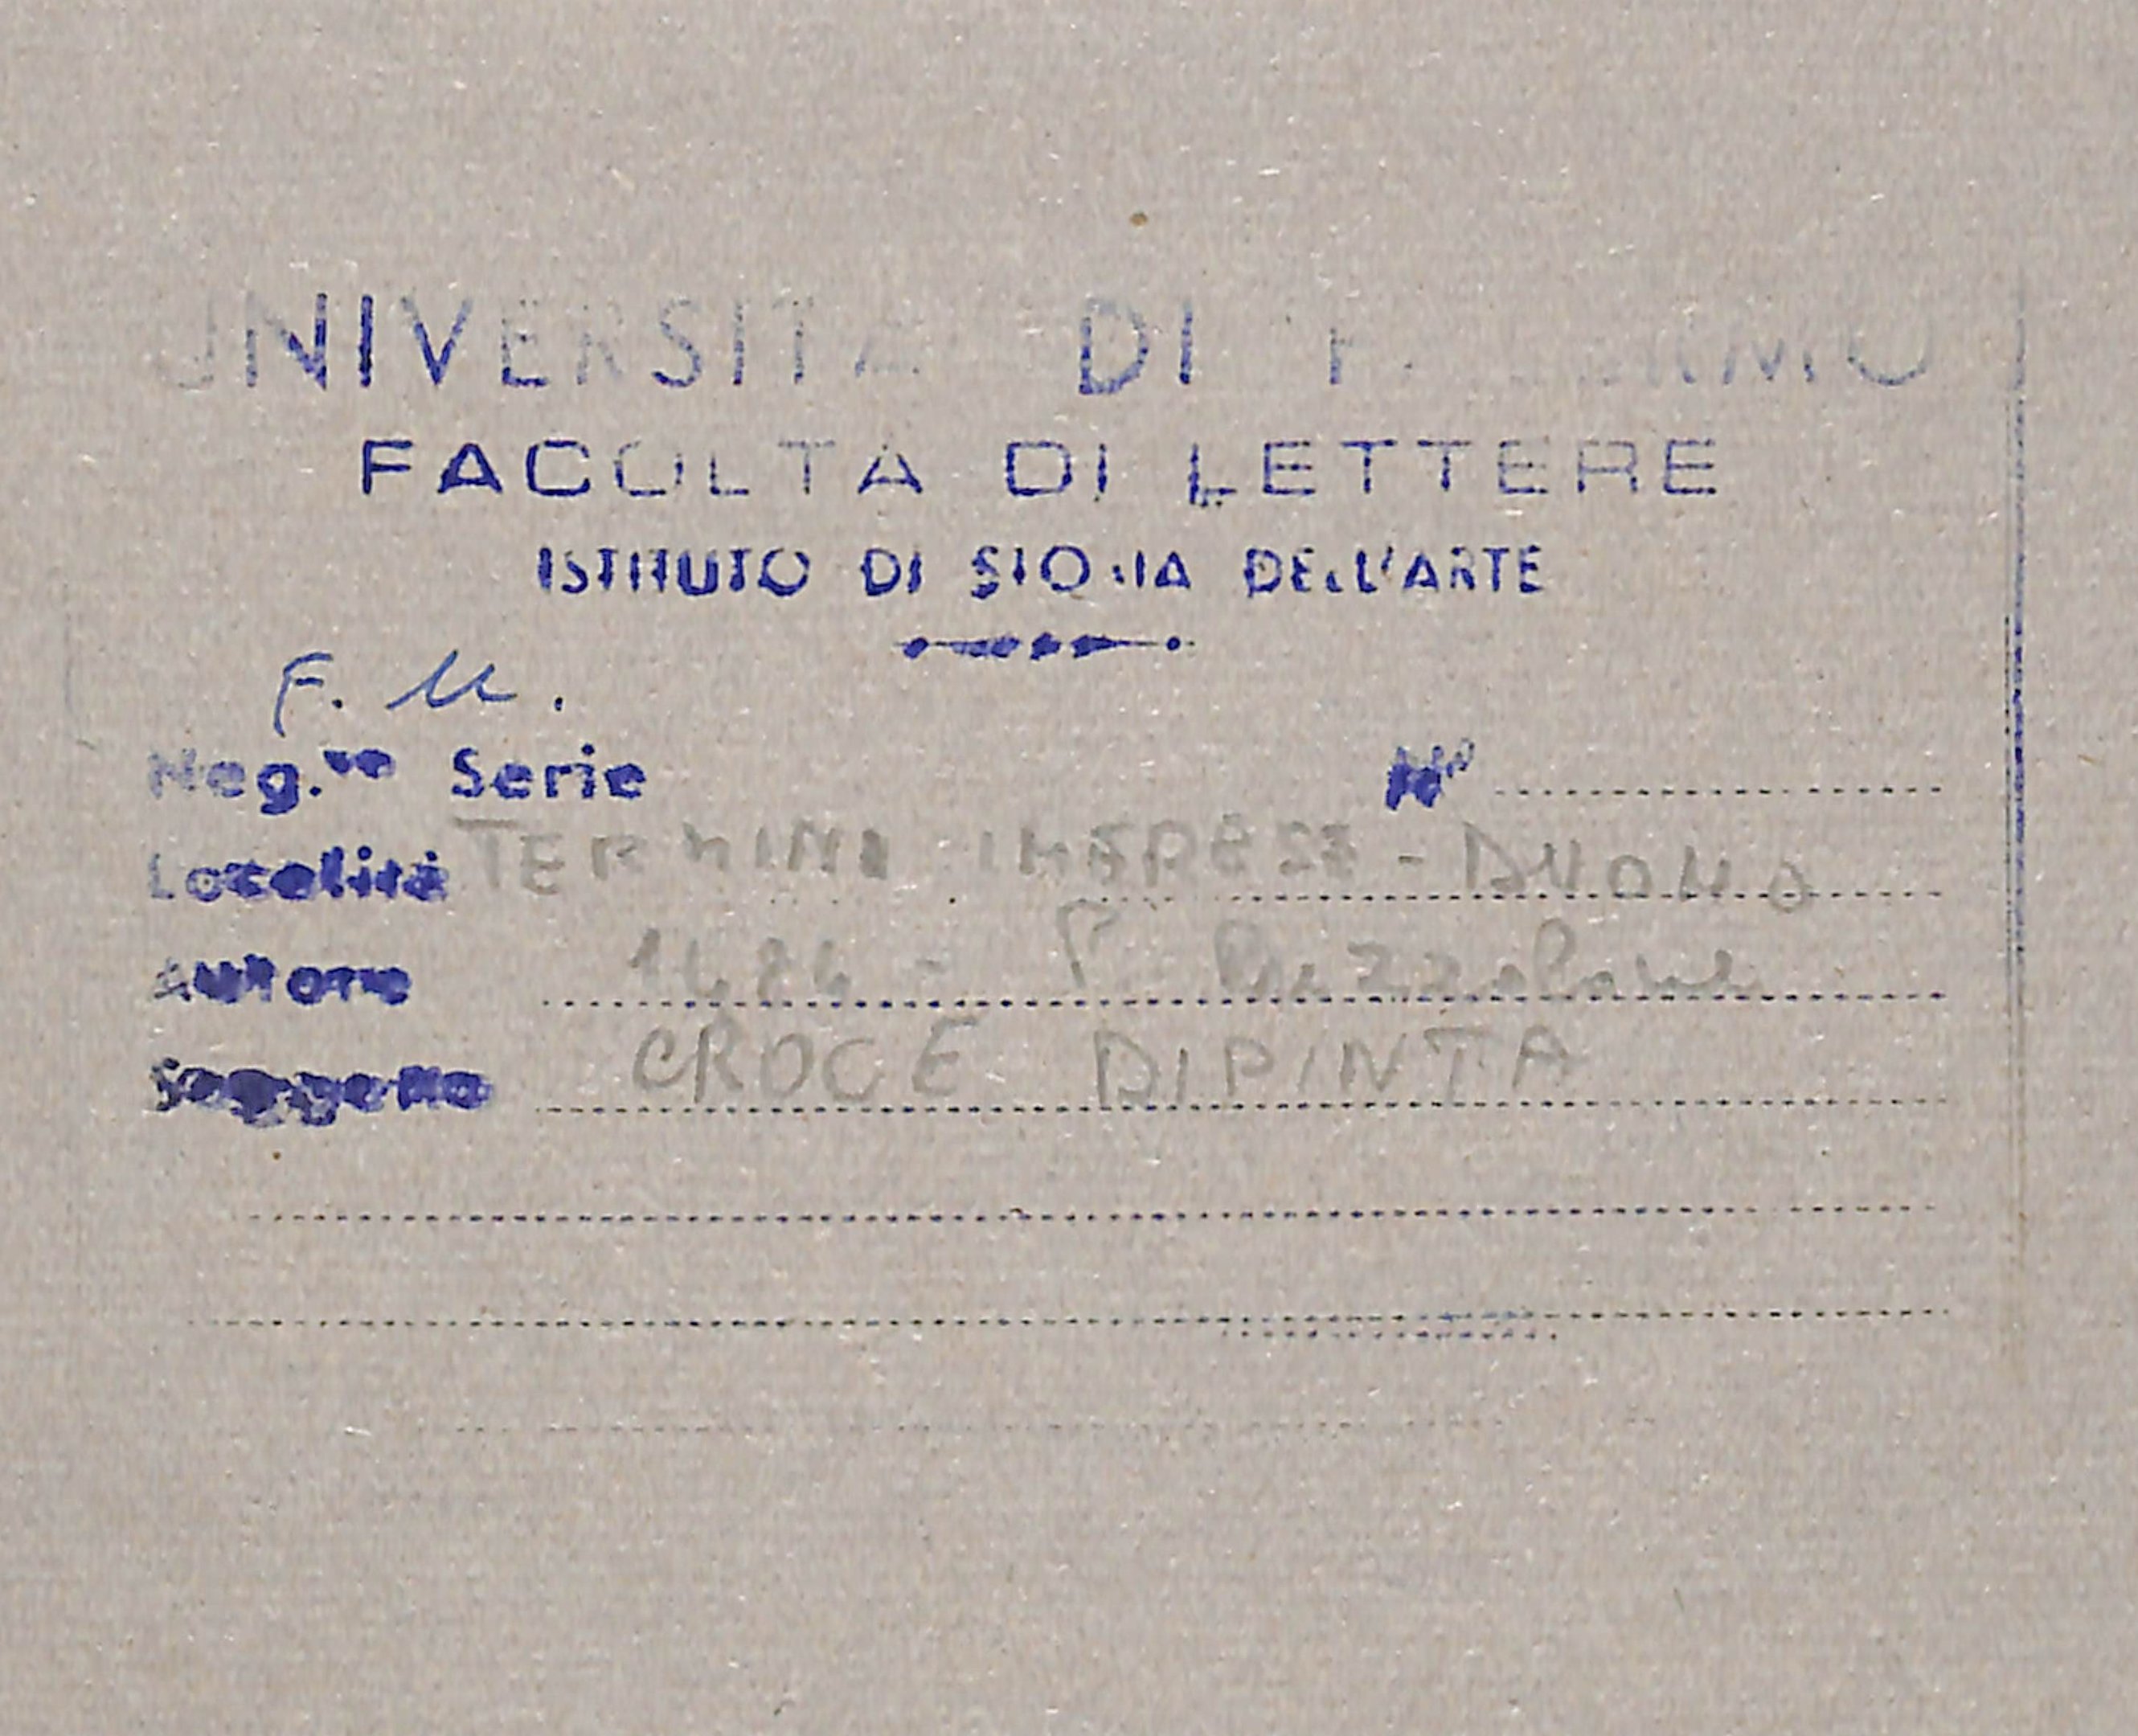 UNIVERSITA DI PALERMO
FACOLTA DI LETTERE
ISTITUTO DI STORIA DELL'ARTE
F. M.
Neg.ve Serie N°
Località TERMINI IMERESE - DUOMO
Autore 1484 - P. Ruzzolone
Soggetto CROCE DIPINTA